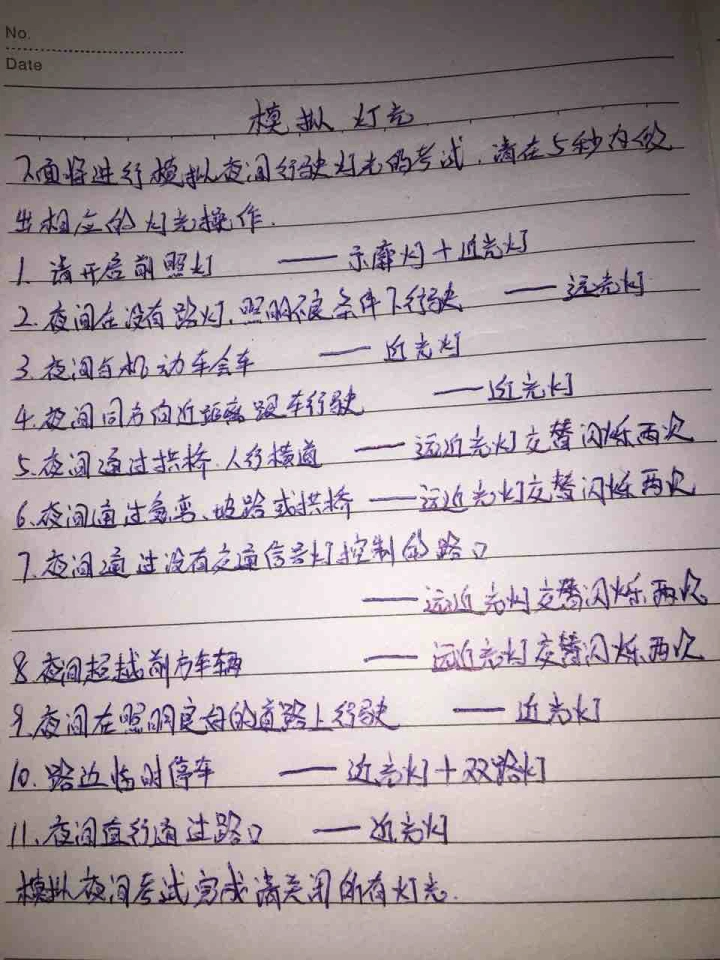 No.
Date
模拟灯光
下面将进行模拟夜间行驶灯光的考试,请在5秒内做
出相应的灯光操作.
1. 请开启前照灯 —— 示廓灯+近光灯
2. 夜间在没有路灯,照明不良条件下行驶 —— 远光灯
3. 夜间与机动车会车 —— 近光灯
4. 夜间同方向近距离跟车行驶 —— 近光灯
5. 夜间通过拱桥、人行横道 —— 远近光灯交替闪烁两次
6. 夜间通过急弯、坡路或拱桥 —— 远近光灯交替闪烁两次
7. 夜间通过没有交通信号灯控制的路口
—— 远近光灯交替闪烁两次
8. 夜间超越前方车辆 —— 远近光灯交替闪烁两次
9. 夜间在照明良好的道路上行驶 —— 近光灯
10. 路边临时停车 —— 近光灯+双路灯
11. 夜间直行通过路口 —— 近光灯
模拟夜间考试完成请关闭所有灯光.